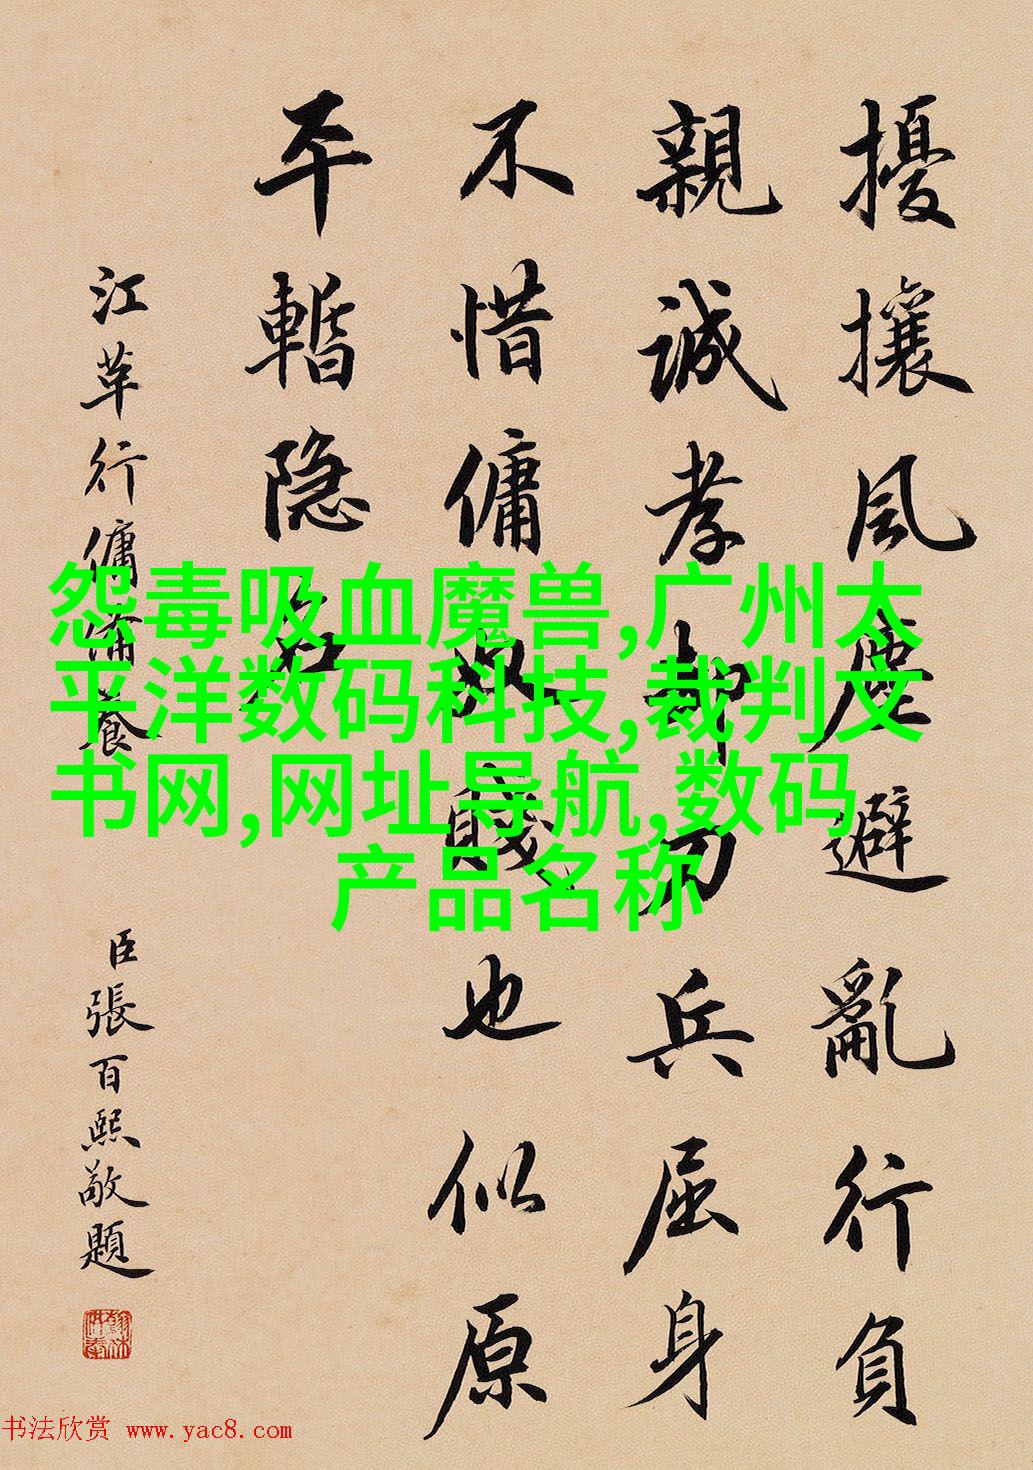 擾攘風塵避亂行負
親誠孝却刀兵屈身
不惜傭奴賤也似原
平暫隐名
江革行傭養
臣張百熙敬題
怨毒吸血魔兽,广州太
平洋数码科技,裁判文
书网,网址导航,数码
产品名称
书法欣赏 www.yac8.com